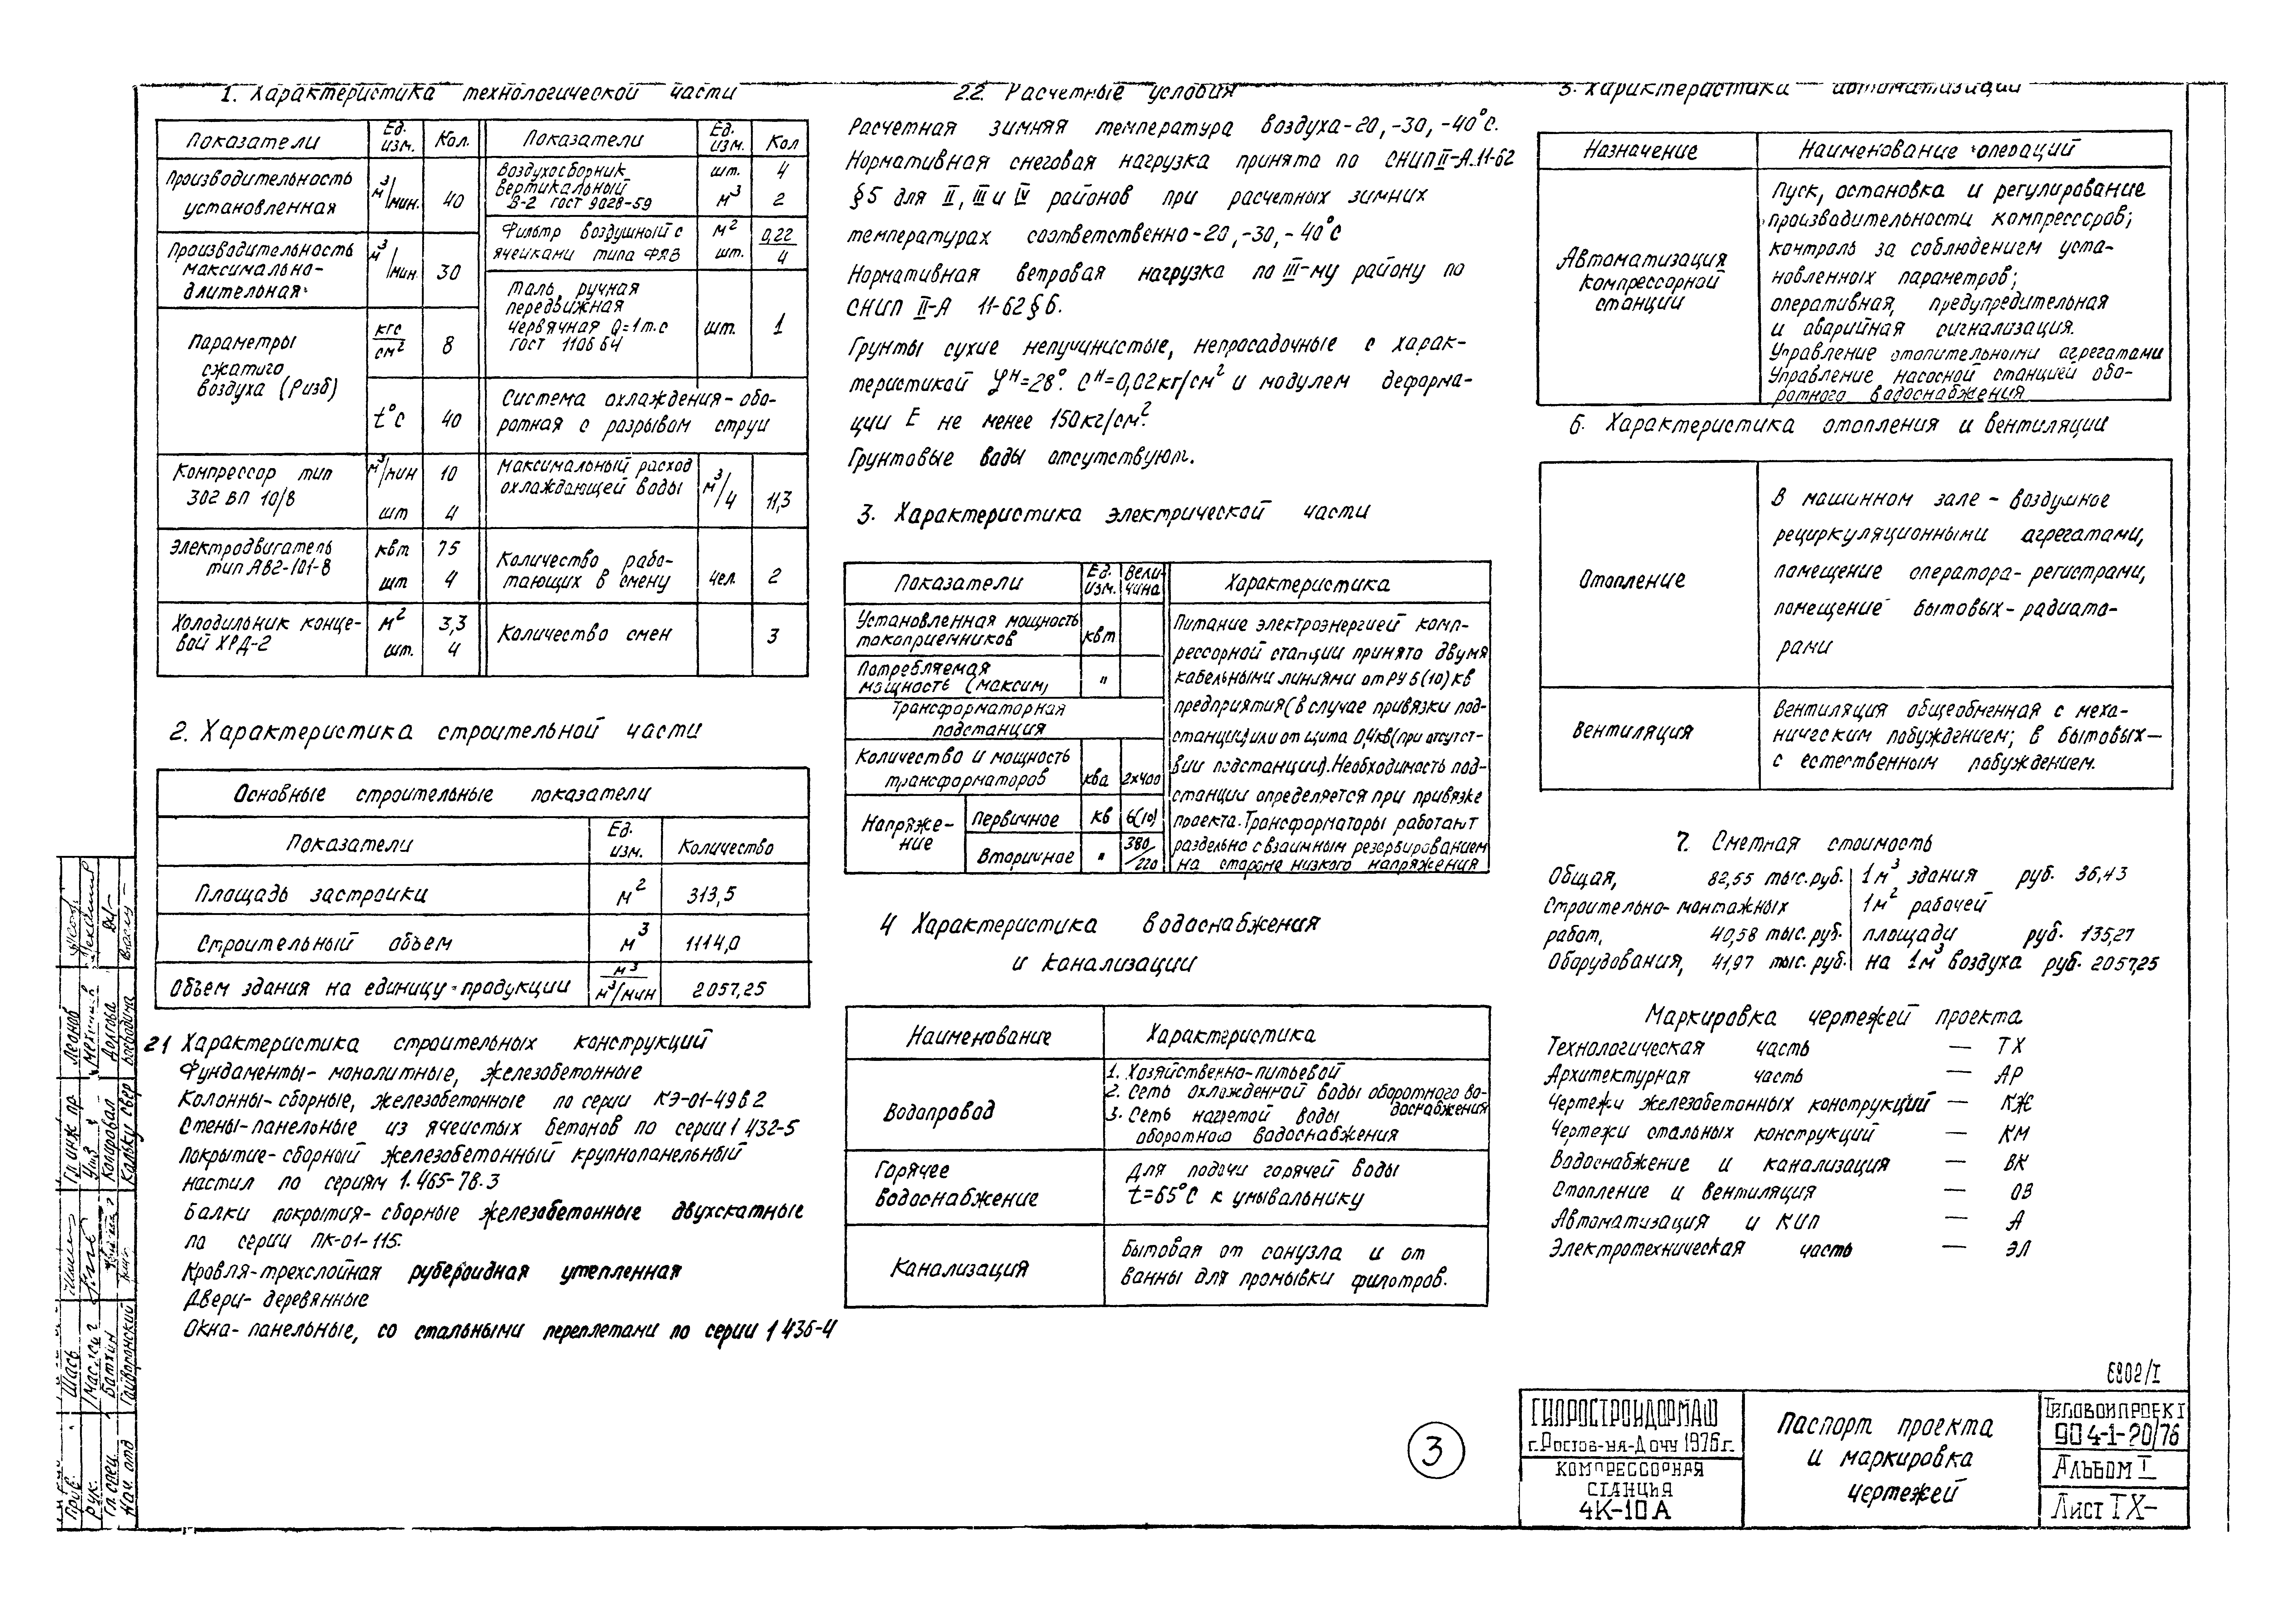 1. Характеристика технологической части
Показатели Ед. изм. Кол. Показатели Ед. изм. Кол
Производительность установленная м³/мин. 40
Воздухосборник вертикальный В-2 ГОСТ 9028-59 шт. 4 м³ 2
Производительность максимально-длительная м³/мин 30
Фильтр воздушный с ячейками типа ФЯВ м² шт. 0,22 4
Таль ручная передвижная червячная Q=1т.с ГОСТ 1106 64 шт. 1
Параметры сжатого воздуха (Ризб) кгс/см² 8
t°C 40
Система охлаждения-оборотная с разрывом струи
Компрессор тип 302 ВП 10/8 м³/мин 10 шт 4
Максимальный расход охлаждающей воды м³/ч 11,3
Электродвигатель тип АВ2-101-8 квт 75 шт 4
Количество работающих в смену чел. 2
Холодильник концевой ХРД-2 м² 3,3 шт. 4
Количество смен 3
2. Характеристика строительной части
Основные строительные показатели
Показатели Ед. изм. Количество
Площадь застройки м² 313,5
Строительный объем м³ 1114,0
Объем здания на единицу продукции м³ м³/мин 2057,25
21 Характеристика строительных конструкций
Фундаменты- монолитные, железобетонные
Колонны-сборные, железобетонные по серии КЭ-01-49 в 2
Стены-панельные из ячеистых бетонов по серии 1 432-5
Покрытие-сборный железобетонный крупнопанельный
настил по сериям 1.465-7В.3
Балки покрытия-сборные железобетонные двухскатные
по серии ПК-01-115.
Кровля-трехслойная рубероидная утепленная
Двери- деревянные
Окна-панельные, со стальными переплетами по серии 1 436-4
2.2. Расчетные условия
Расчетная зимняя температура воздуха-20,-30,-40°С.
Нормативная снеговая нагрузка принята по СНиП II-А.11-62
§5 для II, III и IV районов при расчетных зимних
температурах соответственно-20,-30,-40°С
Нормативная ветровая нагрузка по III-му району по
СНиП II-А 11-62 §6.
Грунты сухие непучинистые, непросадочные с харак-
теристикой φᴴ=28°. Сᴴ=0,02кг/см² и модулем деформа-
ции Е не менее 150кг/см².
Грунтовые воды отсутствуют.
3. Характеристика электрической части
Показатели Ед. изм. Вели-чина Характеристика
Установленная мощность токоприемников квт
Потребляемая мощность (максим) "
Трансформаторная подстанция
Количество и мощность трансформаторов ква 2х400
Напряже-ние Первичное кв 6(10)
Вторичное " 380/220
Питание электроэнергией комп-
рессорной станции принято двумя
кабельными линиями от РУ 6(10)кв
предприятия(в случае привязки под-
станции)или от щита 0,4кв(при отсутст-
вии подстанции).Необходимость под-
станции определяется при привязке
проекта.Трансформаторы работают
раздельно с взаимным резервированием
на стороне низкого напряжения
4 Характеристика водоснабжения
и канализации
Наименование Характеристика
Водопровод
1. Хозяйственно-питьевой
2. Сеть охлажденной воды оборотного во-
доснабжения
3. Сеть нагретой воды
оборотного водоснабжения
Горячее водоснабжение
Для подачи горячей воды
t=65°С к умывальнику
Канализация
Бытовая от санузла и от
ванны для промывки филотров.
5. Характеристика автоматизации
Назначение Наименование операций
Автоматизация компрессорной станции
Пуск, остановка и регулирование
производительности компрессоров;
контроль за соблюдением уста-
новленных параметров;
оперативная, предупредительная
и аварийная сигнализация.
Управление отопительными агрегатами
Управление насосной станцией обо-
ротного водоснабжения
6. Характеристика отопления и вентиляции
Отопление
В машинном зале - воздушное
рециркуляционными агрегатами,
помещение оператора-регистрами,
помещение бытовых-радиато-
рами
Вентиляция
Вентиляция общеобменная с меха-
ническим побуждением; в бытовых—
с естественным побуждением.
7. Сметная стоимость
Общая, 82,55 тыс.руб. 1м³ здания руб. 36,43
Строительно-монтажных 1м² рабочей
работ, 40,58 тыс.руб. площади руб. 135,27
Оборудования, 41,97 тыс.руб. на 1м³ воздуха руб. 2057,25
Маркировка чертежей проекта
Технологическая часть — ТХ
Архитектурная часть — АР
Чертежи железобетонных конструкций — КЖ
Чертежи стальных конструкций — КМ
Водоснабжение и канализация — ВК
Отопление и вентиляция — ОВ
Автоматизация и КИП — А
Электротехническая часть — ЭЛ
6902/I
3
ГИПРОСТРОЙДОРМАШ
г.Ростов-на-Дону 1976г.
КОМПРЕССОРНАЯ
СТАНЦИЯ
4К-10А
Паспорт проекта
и маркировка
чертежей
Типовой проект
904-1-20/76
Альбом I
Лист ТХ-
Гл инж пр Леонов
Копировал Долгова
Кальку свер
Шась
Рук.
Гл.спец. Батхин
Нач. отд Гайворонский